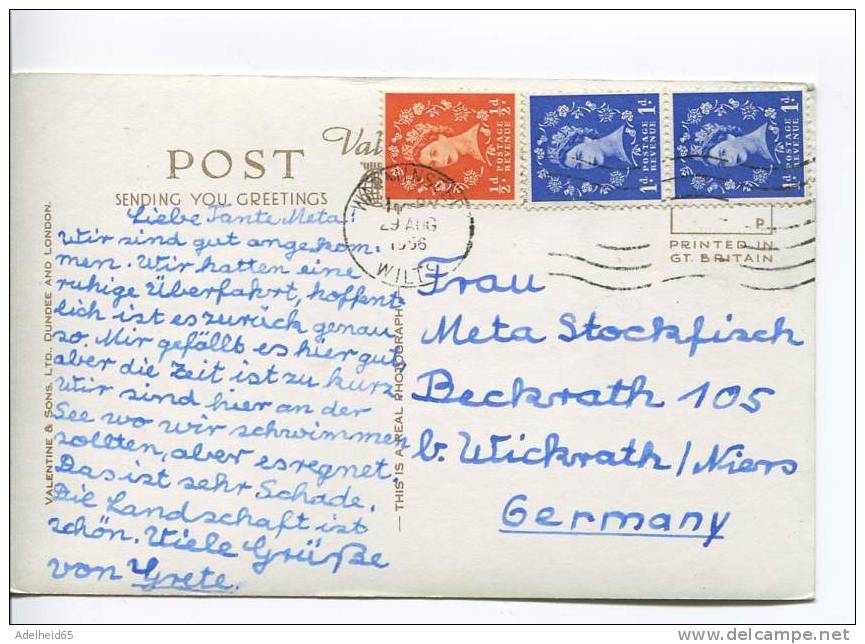 POST
SENDING YOU GREETINGS
Liebe Tante Meta!
Wir sind gut angekom-
men. Wir hatten eine
ruhige Überfahrt, hoffent-
lich ist es zurück genau
so. Mir gefällt es hier gut,
aber die Zeit ist zu kurz.
Wir sind hier an der
See wo wir schwimmen
sollten, aber es regnet.
Das ist sehr Schade.
Die Landschaft ist
schön. Viele Grüße
von Grete.
VALENTINE & SONS, LTD., DUNDEE AND LONDON.
THIS IS A REAL PHOTOGRAPH
½d POSTAGE REVENUE ½d
1d POSTAGE REVENUE 1d
1d POSTAGE REVENUE 1d
29 AUG
1956
WILTS
PRINTED IN
GT. BRITAIN
Frau
Meta Stockfisch
Beckrath 105
b. Wickrath/Niers
Germany
Adelheid65
delcampe.net